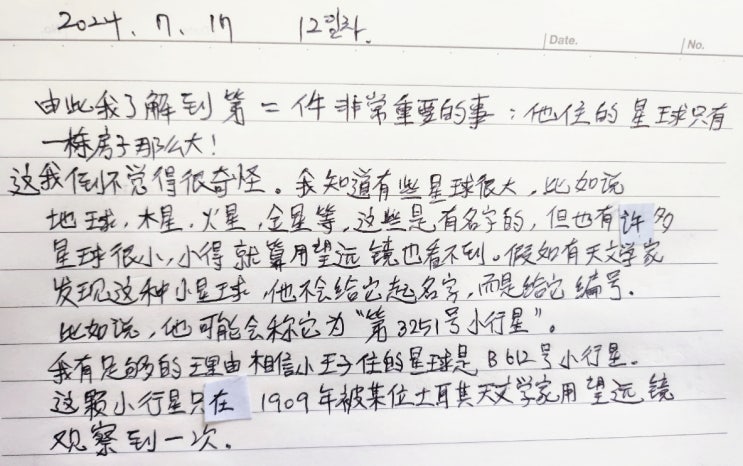 2024. 7. 17 12일차.
Date.
No.
由此我了解到第二件非常重要的事：他住的星球只有
一栋房子那么大！
这我倒不觉得很奇怪。我知道有些星球很大，比如说
地球，木星，火星，金星等，这些是有名字的，但也有许多
星球很小，小得就算用望远镜也看不到。假如有天文学家
发现这种小星球，他不会给它起名字，而是给它编号.
比如说，他可能会称它为“第3251号小行星”。
我有足够的理由相信小王子住的星球是B612号小行星.
这颗小行星只在 1909年被某位土耳其天文学家用望远镜
观察到一次.